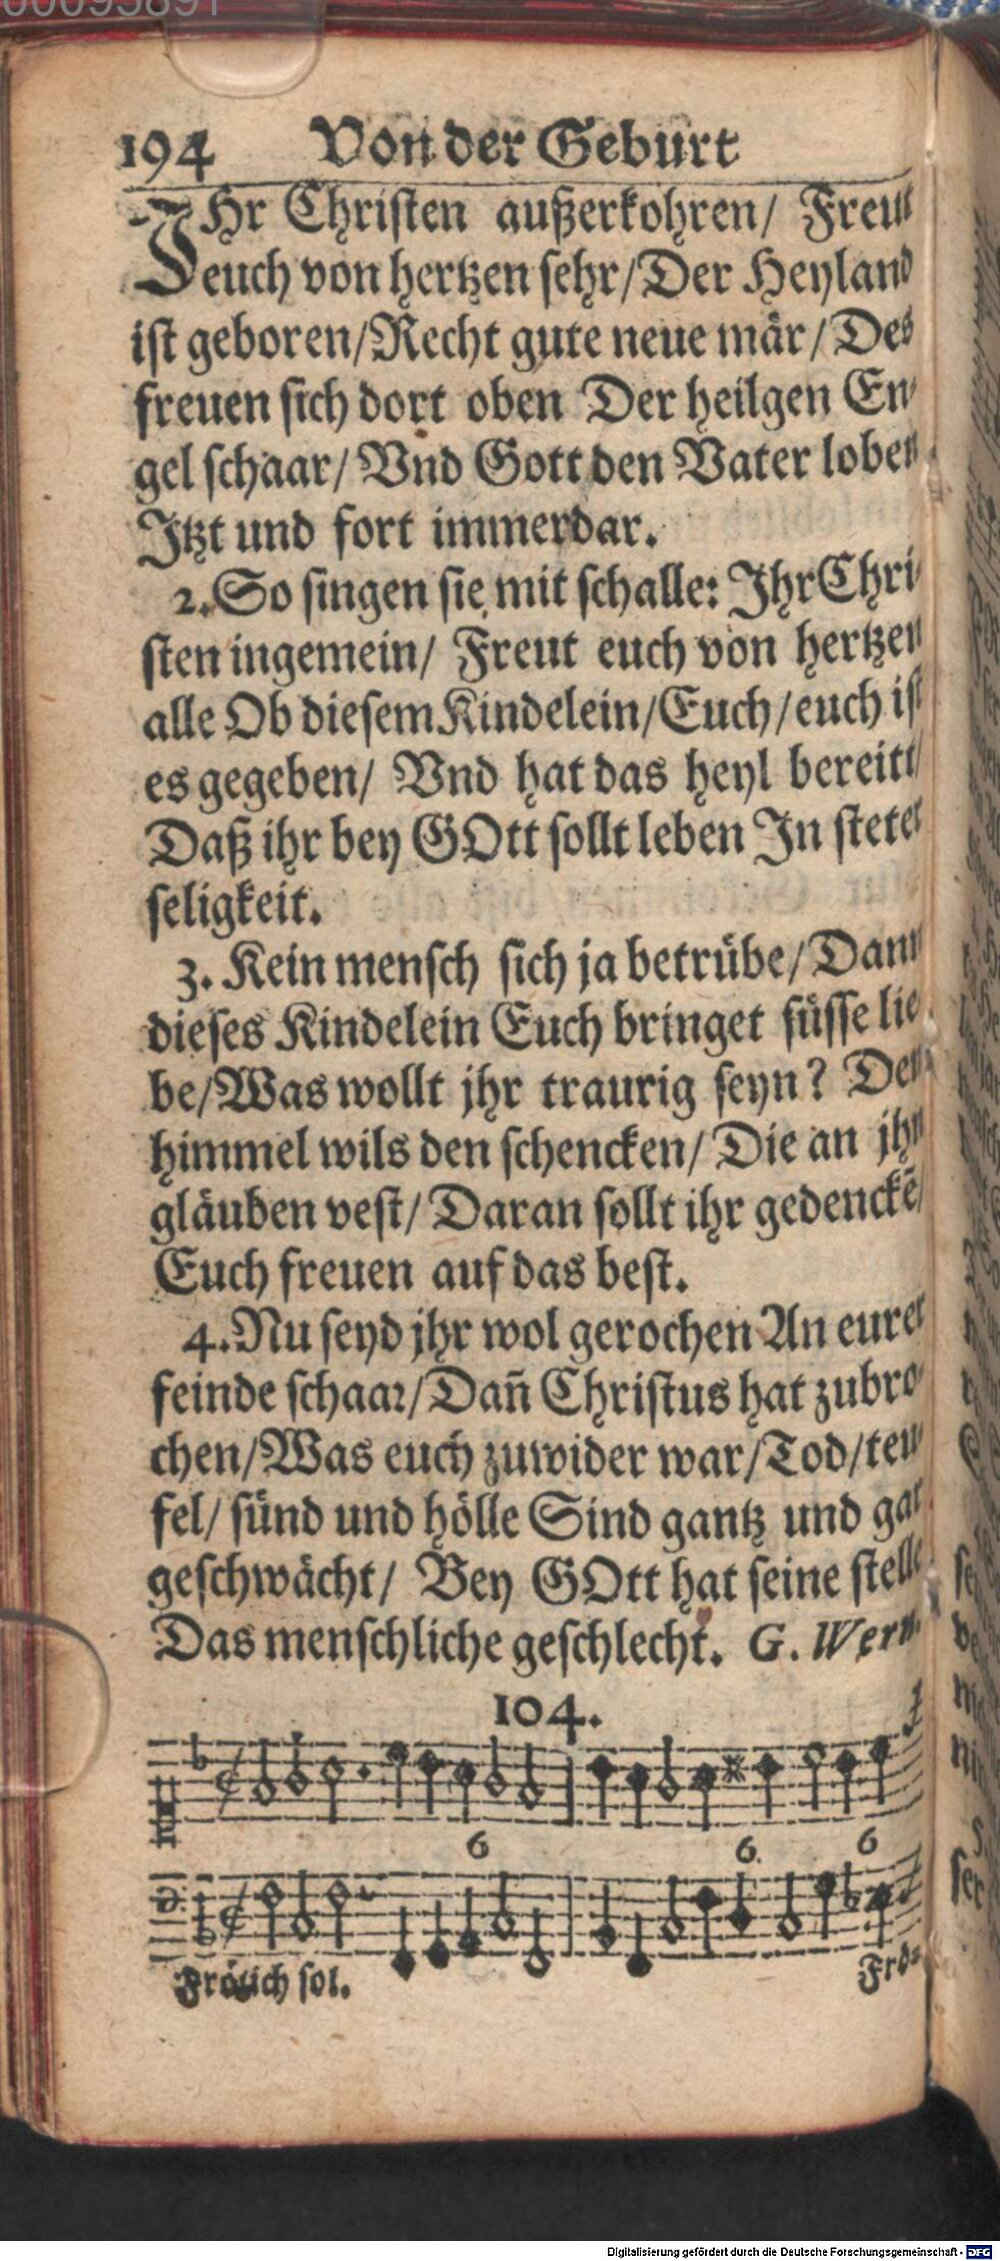 00095891
194 Von der Geburt
IHr Christen außerkohren/ Freut
euch von hertzen sehr/Der Heyland
ist geboren/Recht gute neue mår/Des
freuen sich dort oben Der heilgen En-
gel schaar/ Vnd Gott den Vater loben
Jtzt und fort immerdar.
2. So singen sie mit schalle: Jhr Chri-
sten ingemein/ Freut euch von hertzen
alle Ob diesem Kindelein/Euch/euch ist
es gegeben/ Vnd hat das heyl bereitt/
Daß ihr bey GOtt sollt leben Jn steter
seligkeit.
3. Kein mensch sich ja betrübe/ Dann
dieses Kindelein Euch bringet süsse lie-
be/Was wollt jhr traurig seyn? Den
himmel wils den schencken/ Die an jhn
gläuben vest/ Daran sollt ihr gedenckē/
Euch freuen auf das best.
4. Nu seyd jhr wol gerochen An eurer
feinde schaar/Dañ Christus hat zubro-
chen/Was euch zuwider war/Tod/teu-
fel/ sünd und hölle Sind gantz und gar
geschwächt/ Bey GOtt hat seine stelle
Das menschliche geschlecht. G. Wern.
104.
6 6 6
Frölich sol. Frö-
Digitalisierung gefördert durch die Deutsche Forschungsgemeinschaft - DFG